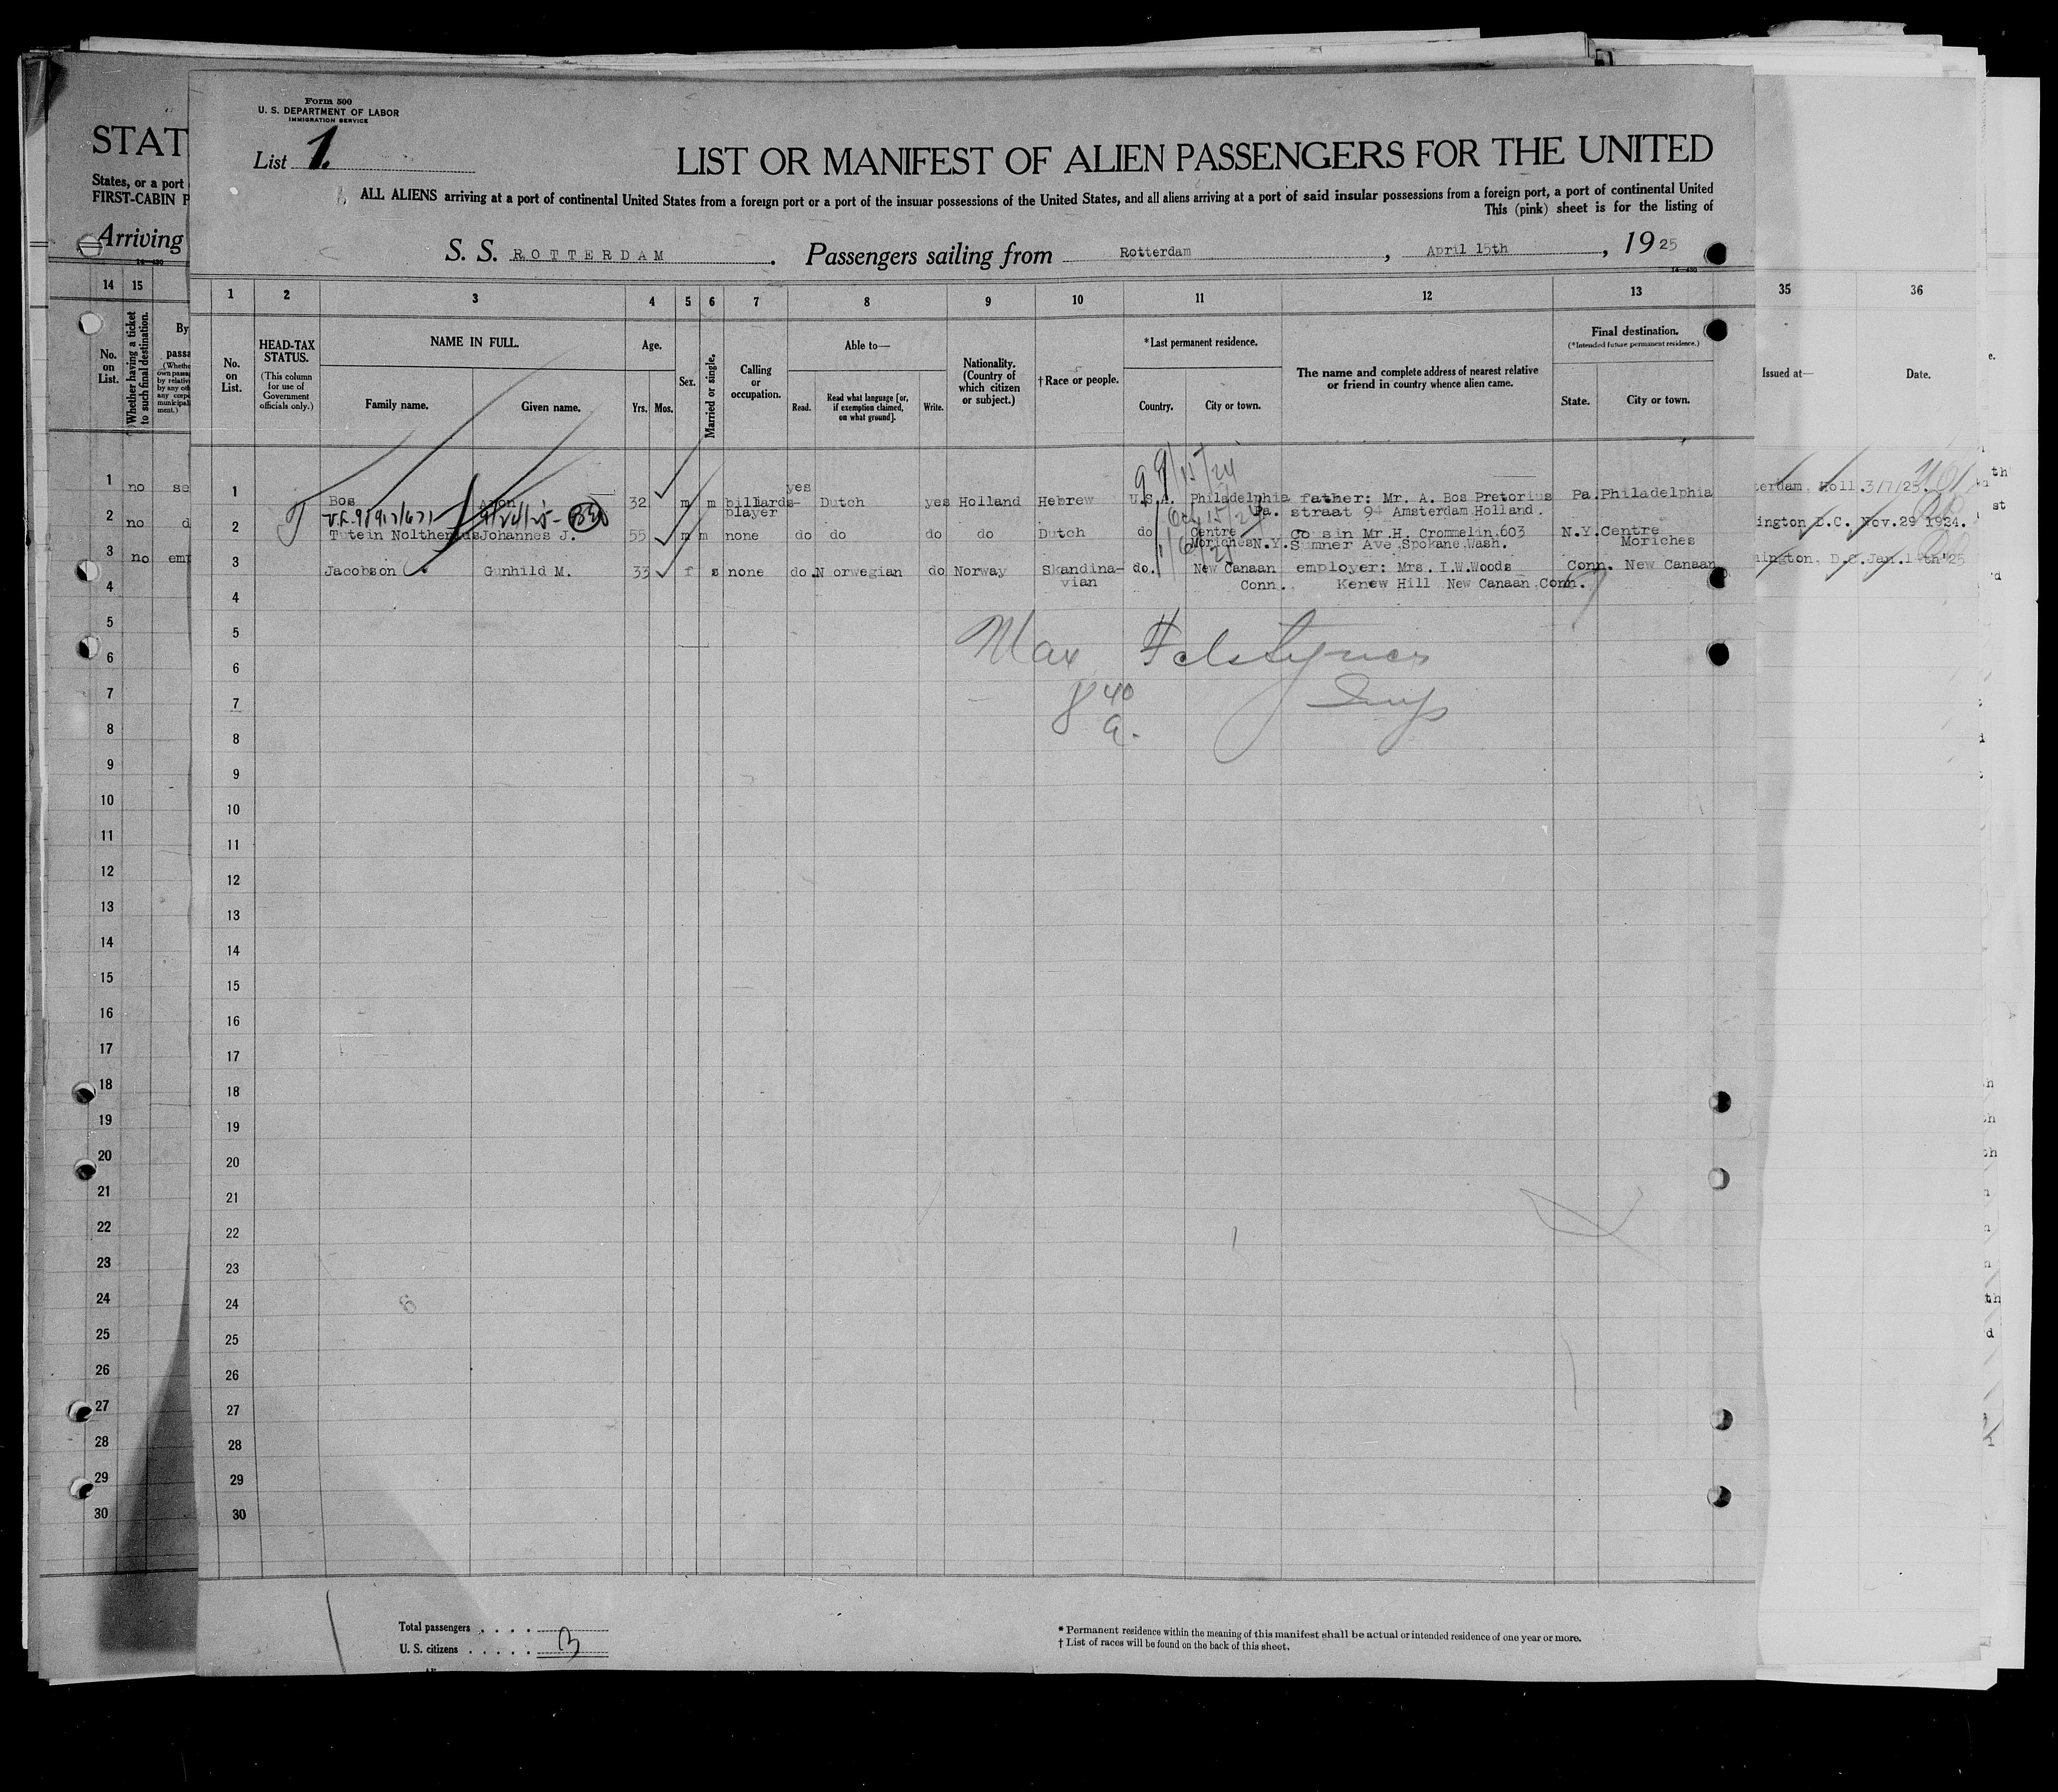 Form 500
U. S. DEPARTMENT OF LABOR
IMMIGRATION SERVICE
List 1.
LIST OR MANIFEST OF ALIEN PASSENGERS FOR THE UNITED
ALL ALIENS arriving at a port of continental United States from a foreign port or a port of the insular possessions of the United States, and all aliens arriving at a port of said insular possessions from a foreign port, a port of continental United
This (pink) sheet is for the listing of
S. S. ROTTERDAM . Passengers sailing from Rotterdam , April 15th , 1925
STAT
States, or a port
FIRST-CABIN P
Arriving
14 15
No. on List.
Whether having a ticket to such final destination.
By
passa
1 2 3 4 5 6 7 8 9 10 11 12 13
35 36
No. on List.
HEAD-TAX STATUS.
(This column for use of Government officials only.)
NAME IN FULL.
Family name. Given name.
Age.
Yrs. Mos.
Sex.
Married or single.
Calling or occupation.
Able to—
Read. Read what language [or, if exemption claimed, on what ground]. Write.
Nationality. (Country of which citizen or subject.)
†Race or people.
*Last permanent residence.
Country. City or town.
The name and complete address of nearest relative or friend in country whence alien came.
Final destination.
(*Intended future permanent residence.)
State. City or town.
Issued at— Date.
1 no se
1 Bos Aron 32 m m billards-player yes Dutch yes Holland Hebrew U.S.A. Philadelphia Pa. father: Mr. A. Bos Pretorius straat 94 Amsterdam Holland. Pa. Philadelphia
erdam, Holl. 3/7/25.
9/15/24
2 no d
2 Tutein Nolthenius Johannes J. 55 m m none do do do do Dutch do Centre Moriches N.Y. Cousin Mr.H. Crommelin 603 Sumner Ave Spokane Wash. N.Y. Centre Moriches
ington D.C. Nov.29 1924.
3 no emp
3 Jacobson Gunhild M. 33 f s none do Norwegian do Norway Skandina-vian do. New Canaan Conn. employer: Mrs. I.W.Woods Kenew Hill New Canaan Conn. Conn. New Canaan
ington, D.C. Jan. 14th'25
4
5
6
7
8
9
10
11
12
13
14
15
16
17
18
19
20
21
22
23
24
25
26
27
28
29
30
Max
8 40
a.
Insp
Total passengers . . . .
U. S. citizens . . . . .
3
* Permanent residence within the meaning of this manifest shall be actual or intended residence of one year or more.
† List of races will be found on the back of this sheet.